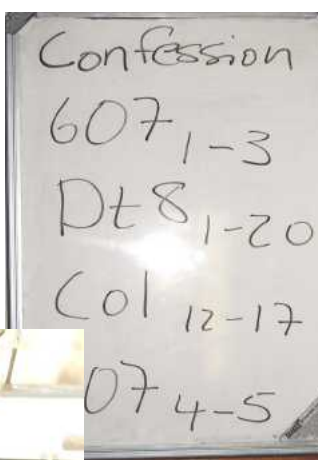 Confession
607 1-3
Dt 8 1-20
Col 12-17
07 4-5